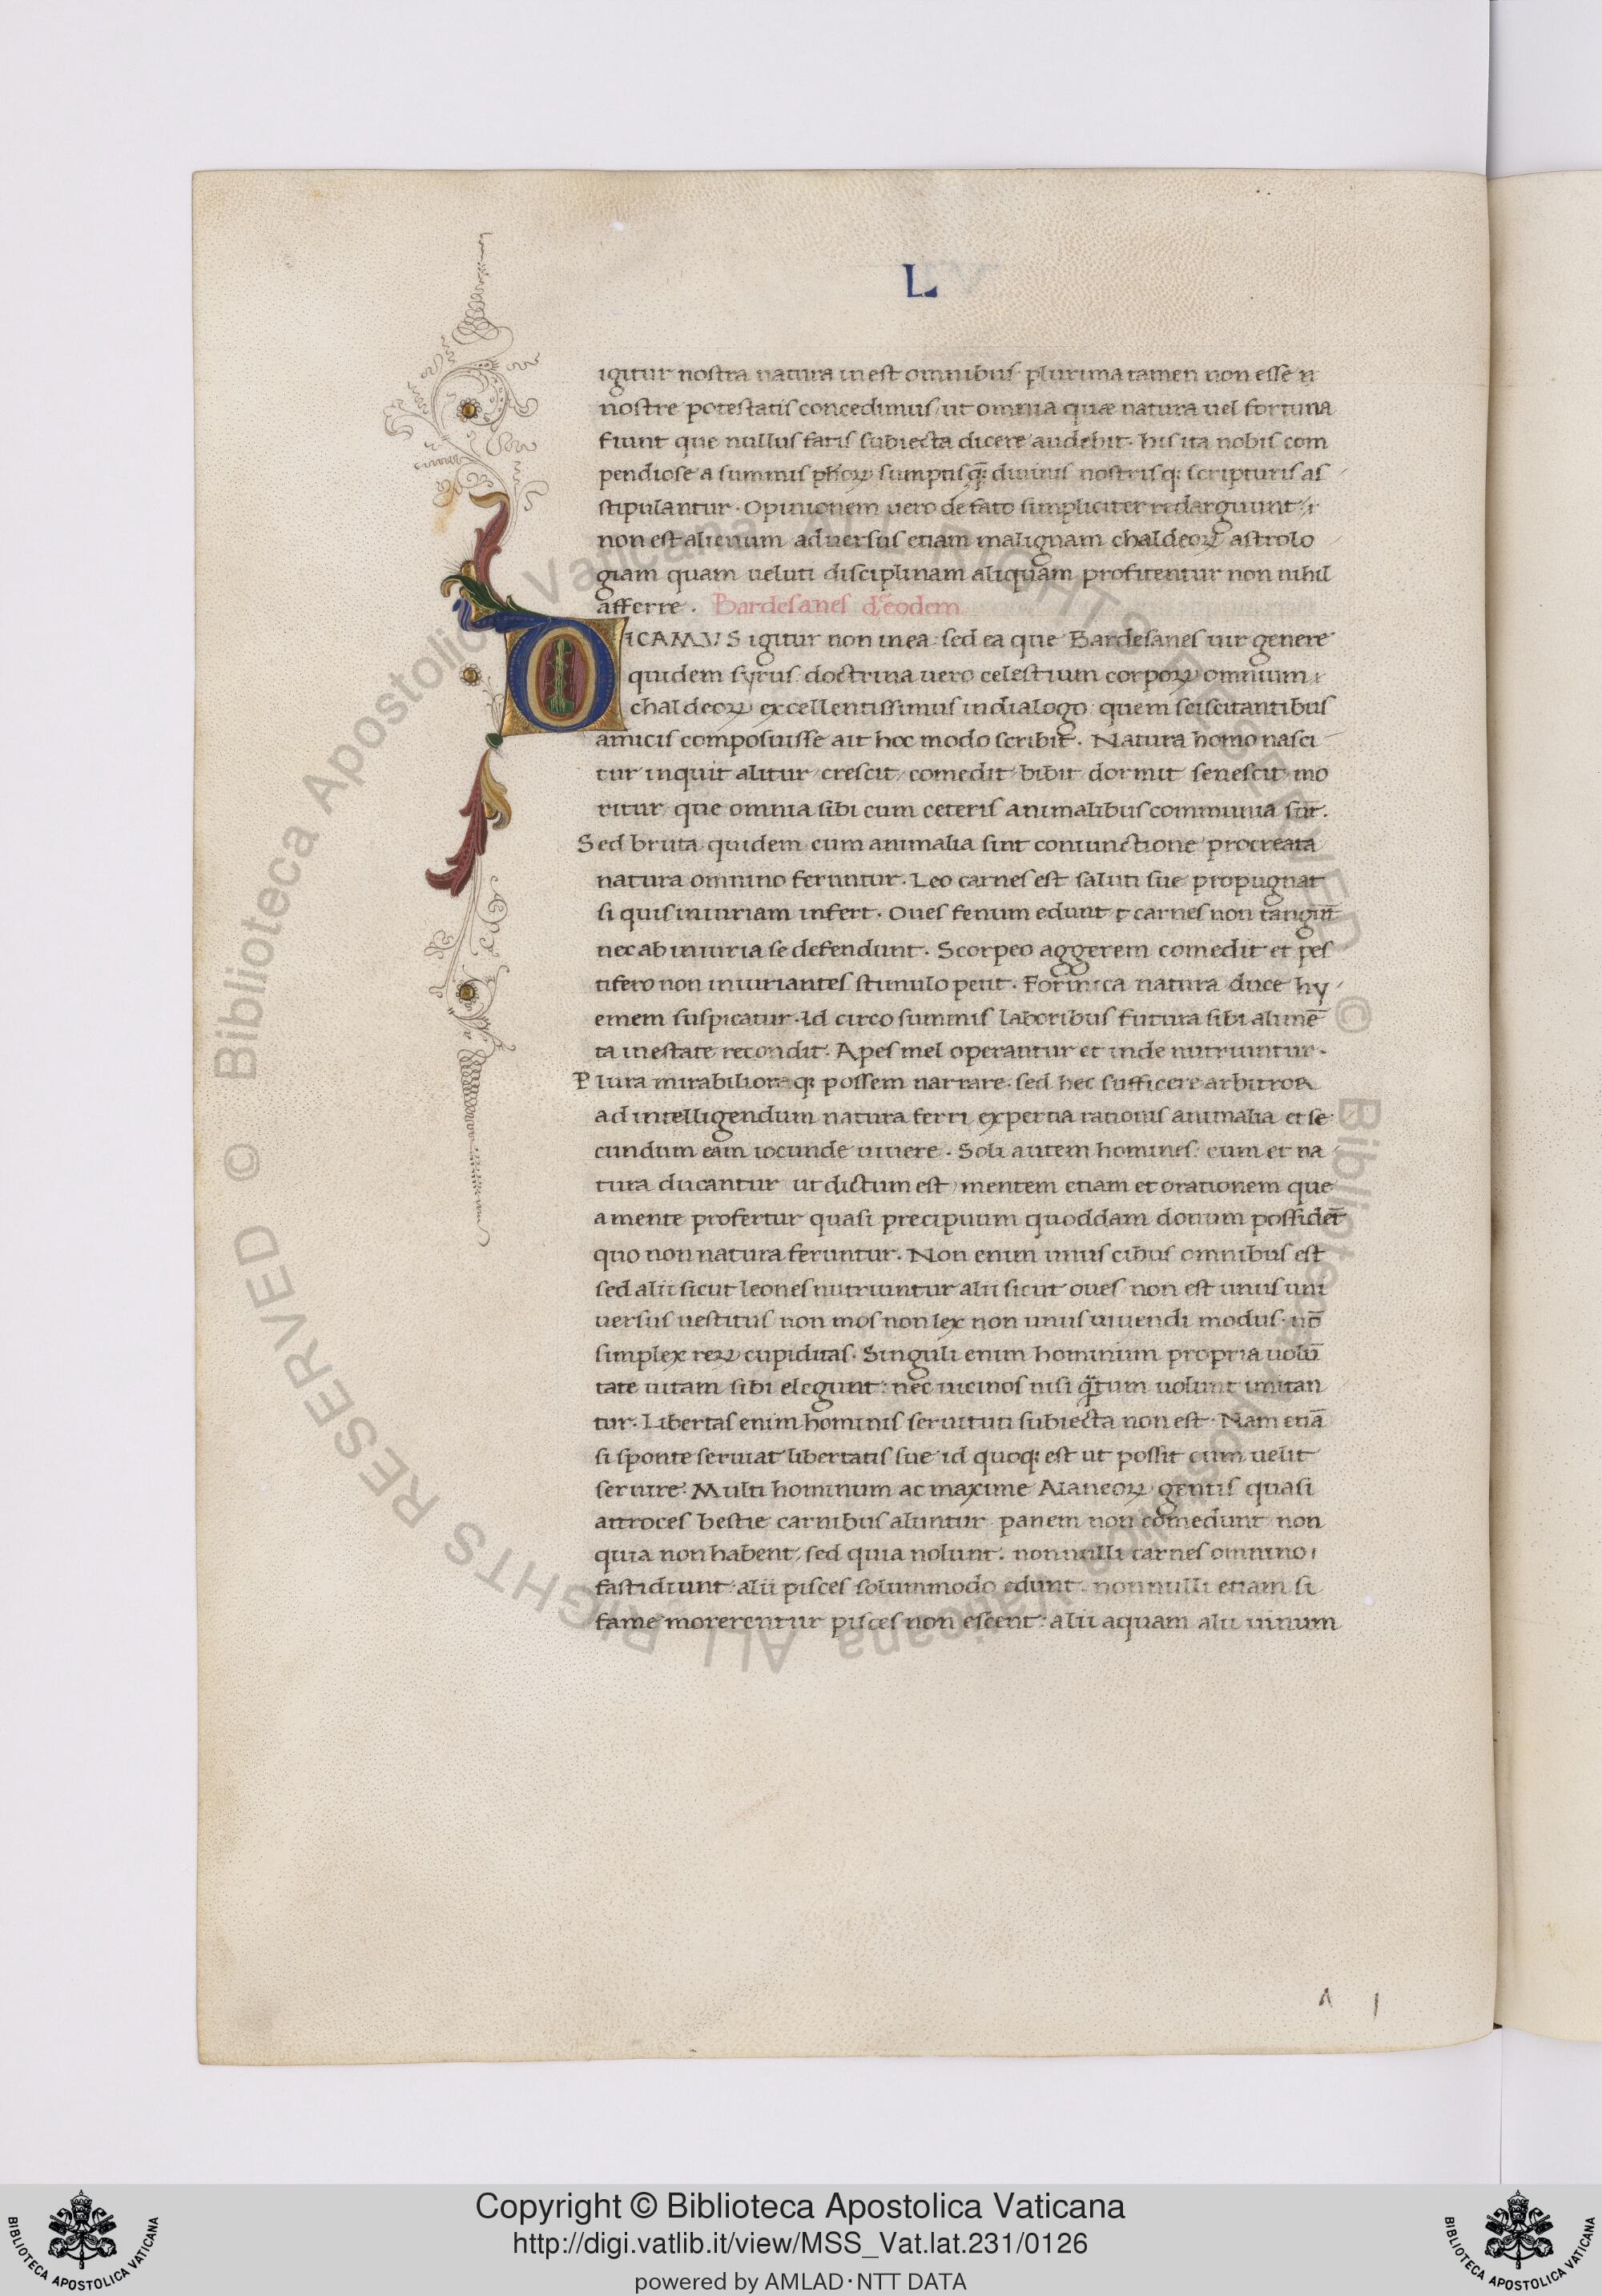 L
igitur nostra natura inest omnibus plurima tamen non esse n
nostre potestatis concedimus ut omnia quæ natura uel fortuna
fiunt que nullus fatis subiecta dicere audebit. his ita nobis com
pendiose a summis phoꝝ sumptis qꝫ diuinis nostrisqꝫ scripturis as
stipulantur. Opinionem uero de fato simpliciter redarguunt
non est alienum aduersus etiam malignam chaldeoꝝ astrolo
giam quam ueluti disciplinam aliquam profitentur non nihil
afferre. Bardesanes d̄ eodem
DICAMUS igitur non mea: sed ea que Bardesanes uir genere
quidem syrus doctrina uero celestium corpoꝝ omnium
chaldeoꝝ excellentissimus in dialogo quem sciscitantibus
amicis composuisse ait hoc modo scribit. Natura homo nasci
tur inquit alitur crescit comedit bibit dormit senescit mo
ritur que omnia sibi cum ceteris animalibus communia sūt.
Sed bruta quidem cum animalia sint coniunctione procreata
natura omnino feruntur. Leo carnes est saluti sue propugnat
si quis iniuriam infert. Oues fenum edunt ⁊ carnes non tangūt
nec ab iniuria se defendunt. Scorpeo aggerem comedit et pes
tifero non iniuriantes stimulo petit. Formica natura duce hy
emem suspicatur. Id circo summis laboribus futura sibi alimē
ta inestate recondit. Apes mel operantur et inde nutriuntur.
Plura mirabilioraqꝫ possem narrare. sed hec sufficere arbitror
ad intelligendum natura ferri expertia rationis animalia et se
cundum eam iocunde uiuere. Soli autem homines: cum et na
tura ducantur ut dictum est mentem etiam et orationem que
a mente profertur quasi precipuum quoddam donum possidēt
quo non natura feruntur. Non enim unus cibus omnibus est
sed alii sicut leones nutriuntur alii sicut oues non est unus uni
uersus uestitus non mos non lex non unus uiuendi modus. nō
simplex reꝝ cupiditas. Singuli enim hominum propria uolū
tate uitam sibi elegunt: nec uicinos nisi q̄tum uolunt imitan
tur. Libertas enim hominis seruituti subiecta non est. Nam etiā
si sponte seruiat libertatis sue id quoqꝫ est ut possit cum uelit
seruire. Multi hominum ac maxime Alaneoꝝ gentis quasi
atroces bestie carnibus aluntur panem non comedunt non
quia non habent, sed quia nolunt. nonnulli carnes omnino
fastidiunt alii pisces solummodo edunt. nonnulli etiam si
fame morerentur pisces non escent: alii aquam alii uinum
© Biblioteca Apostolica Vaticana ALL RIGHTS RESERVED © Biblioteca Apostolica Vaticana ALL RIGHTS RESERVED
Copyright © Biblioteca Apostolica Vaticana
http://digi.vatlib.it/view/MSS_Vat.lat.231/0126
powered by AMLAD·NTT DATA
BIBLIOTECA APOSTOLICA VATICANA
BIBLIOTECA APOSTOLICA VATICANA